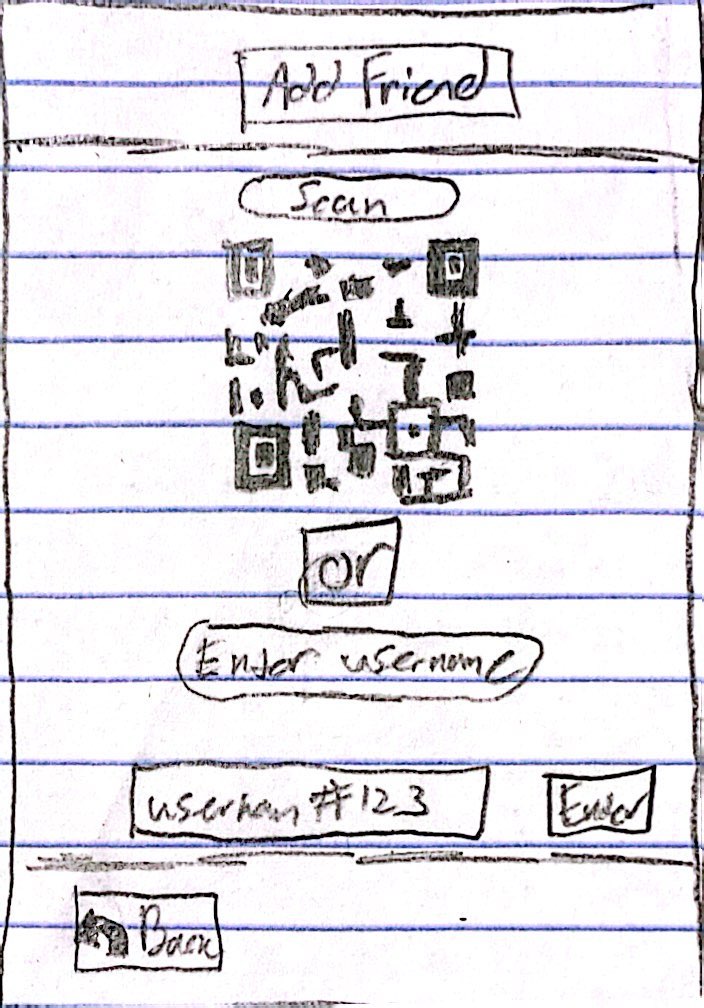 Add Friend
Scan
or
Enter username
usernam #123
Enter
Back